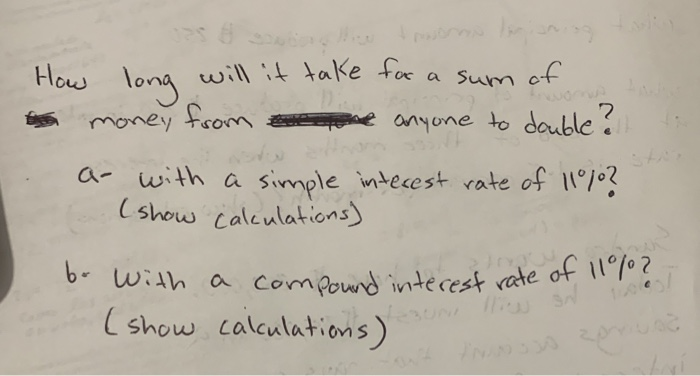 How long will it take for a sum of
money from anyone to double?
a- with a simple interest rate of 11%?
(show calculations)
b- with a compound interest rate of 11%?
(show calculations)